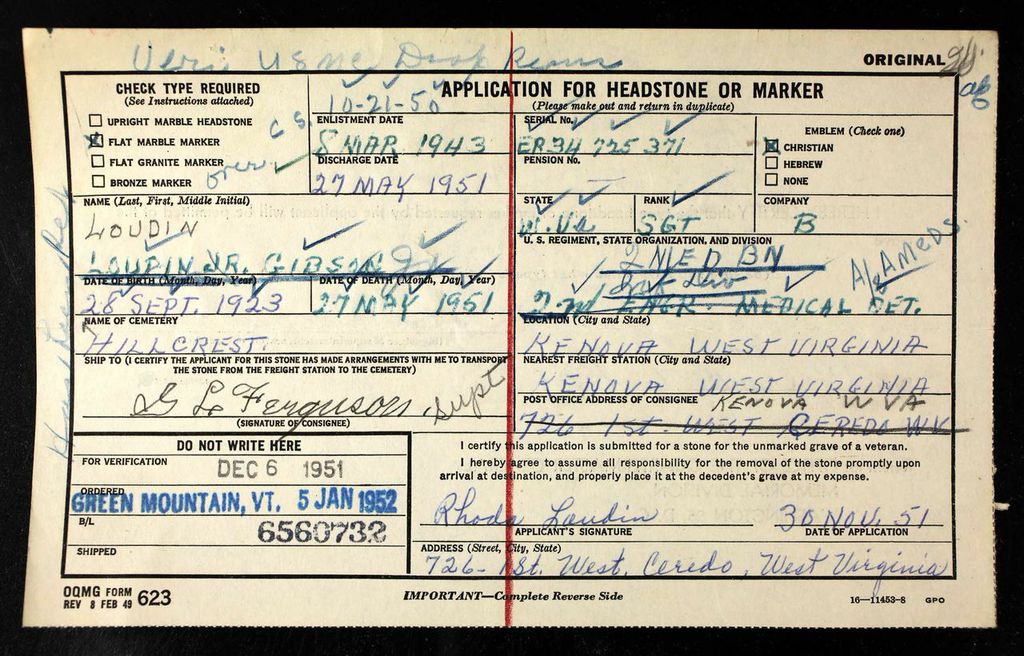 ORIGINAL
CHECK TYPE REQUIRED
(See Instructions attached)
UPRIGHT MARBLE HEADSTONE
FLAT MARBLE MARKER
FLAT GRANITE MARKER
BRONZE MARKER
10-21-50
ENLISTMENT DATE
8 MAR 1943
DISCHARGE DATE
27 MAY 1951
APPLICATION FOR HEADSTONE OR MARKER
(Please make out and return in duplicate)
SERIAL No.
ER 34 725 371
PENSION No.
—
EMBLEM (Check one)
CHRISTIAN
HEBREW
NONE
NAME (Last, First, Middle Initial)
LOUDIN
LOUDIN JR. GIBSON
STATE
W. Va
RANK
SGT
COMPANY
B
U. S. REGIMENT, STATE ORGANIZATION, AND DIVISION
2 MED BN
2nd Inf Div
MEDICAL DET.
DATE OF BIRTH (Month, Day, Year)
28 SEPT. 1923
DATE OF DEATH (Month, Day, Year)
27 MAY 1951
NAME OF CEMETERY
HILLCREST
LOCATION (City and State)
KENOVA WEST VIRGINIA
SHIP TO (I CERTIFY THE APPLICANT FOR THIS STONE HAS MADE ARRANGEMENTS WITH ME TO TRANSPORT
THE STONE FROM THE FREIGHT STATION TO THE CEMETERY)
G L Ferguson, Supt
(SIGNATURE OF CONSIGNEE)
NEAREST FREIGHT STATION (City and State)
KENOVA WEST VIRGINIA
POST OFFICE ADDRESS OF CONSIGNEE
KENOVA W VA
726 1st. WEST CEREDO W.V.
DO NOT WRITE HERE
FOR VERIFICATION
DEC 6 1951
ORDERED
GREEN MOUNTAIN, VT. 5 JAN 1952
B/L
6560732
SHIPPED
I certify this application is submitted for a stone for the unmarked grave of a veteran.
I hereby agree to assume all responsibility for the removal of the stone promptly upon
arrival at destination, and properly place it at the decedent's grave at my expense.
Rhoda Loudin
APPLICANT'S SIGNATURE
30 NOV. 51
DATE OF APPLICATION
ADDRESS (Street, City, State)
726- 1st. West, Ceredo, West Virginia
OQMG FORM
REV 8 FEB 49 623
IMPORTANT—Complete Reverse Side
16—11453-8 GPO